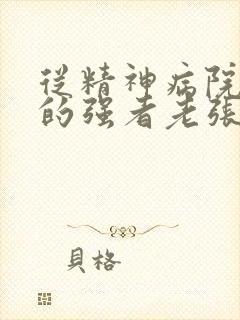 從精神病院
的强者老張
貝格